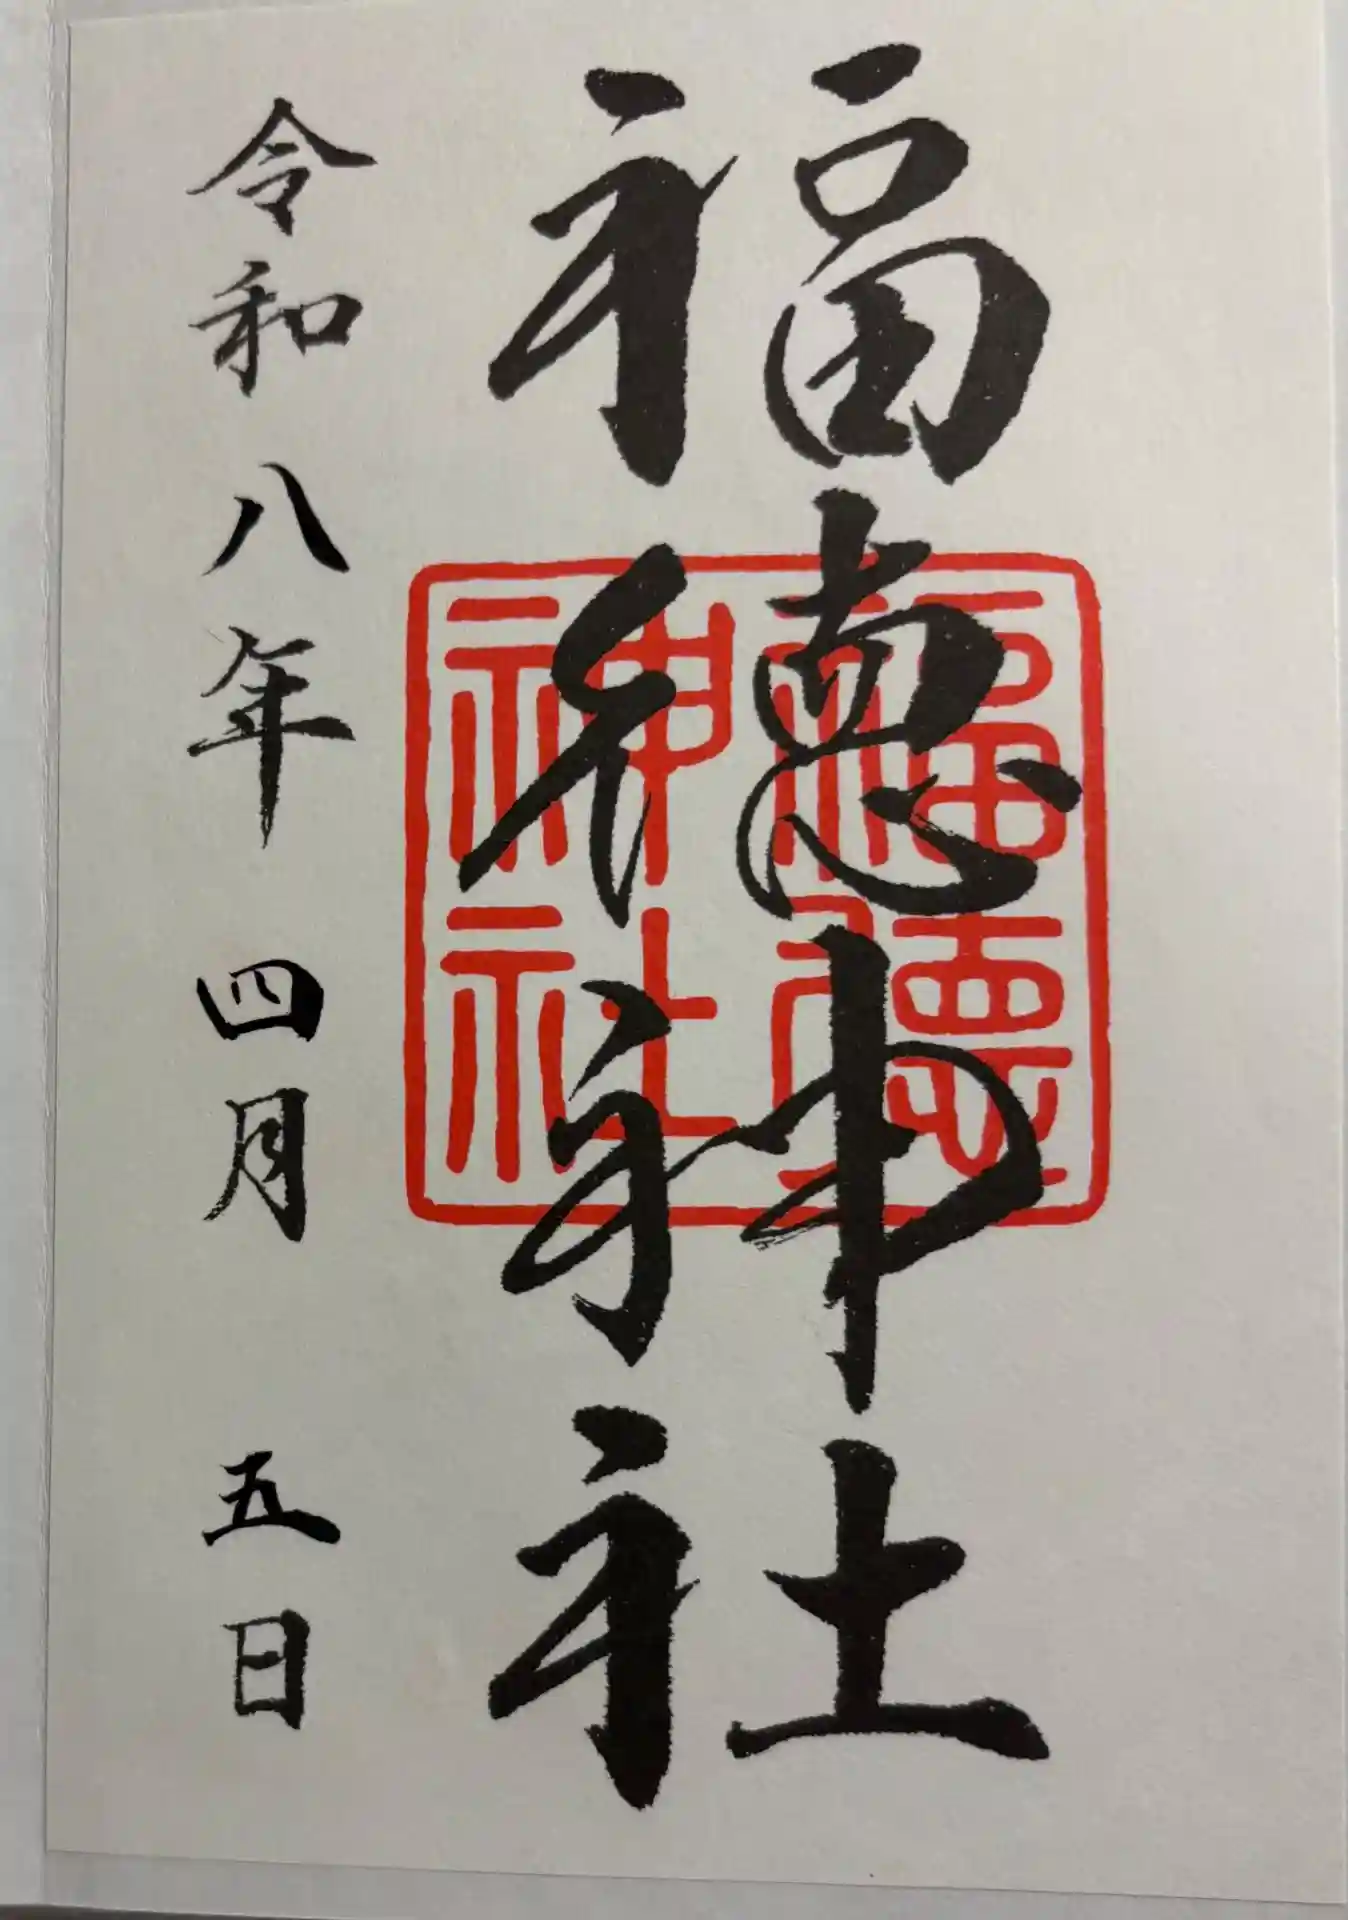 福徳神社
福徳神社
令和八年 四月 五日